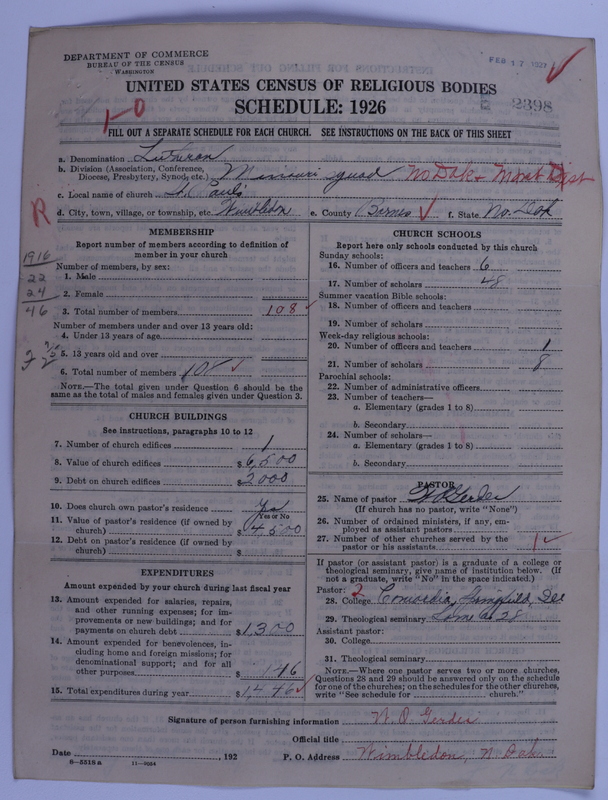 DEPARTMENT OF COMMERCE
BUREAU OF THE CENSUS
WASHINGTON
FEB 17 1927
UNITED STATES CENSUS OF RELIGIOUS BODIES
SCHEDULE: 1926
2398
1-0
FILL OUT A SEPARATE SCHEDULE FOR EACH CHURCH. SEE INSTRUCTIONS ON THE BACK OF THIS SHEET
a. Denomination Lutheran
b. Division (Association, Conference, Diocese, Presbytery, Synod, etc.) Missouri No Dak & Mont Dist
c. Local name of church St. Paul's
R
d. City, town, village, or township, etc. Wimbledon e. County Barnes f. State No. Dak
MEMBERSHIP
Report number of members according to definition of
member in your church
1916
22
24
46
Number of members, by sex:
1. Male
2. Female
3. Total number of members 108
Number of members under and over 13 years old:
4. Under 13 years of age
5. 13 years old and over
6. Total number of members 108
NOTE.—The total given under Question 6 should be the
same as the total of males and females given under Question 3.
CHURCH BUILDINGS
See instructions, paragraphs 10 to 12
7. Number of church edifices 1
8. Value of church edifices $6,500
9. Debt on church edifices $2000
10. Does church own pastor's residence Yes
Yes or No
11. Value of pastor's residence (if owned by
church) $4500
12. Debt on pastor's residence (if owned by
church) $
EXPENDITURES
Amount expended by your church during last fiscal year
13. Amount expended for salaries, repairs,
and other running expenses; for im-
provements or new buildings; and for
payments on church debt $1,300
14. Amount expended for benevolences, in-
cluding home and foreign missions; for
denominational support; and for all
other purposes $ 146
15. Total expenditures during year $1,446
CHURCH SCHOOLS
Report here only schools conducted by this church
Sunday schools:
16. Number of officers and teachers 6
17. Number of scholars 48
Summer vacation Bible schools:
18. Number of officers and teachers
19. Number of scholars
Week-day religious schools:
20. Number of officers and teachers 1
21. Number of scholars 8
Parochial schools:
22. Number of administrative officers
23. Number of teachers—
a. Elementary (grades 1 to 8)
b. Secondary
24. Number of scholars—
a. Elementary (grades 1 to 8)
b. Secondary
PASTOR
25. Name of pastor W. O. Gerdes
(If church has no pastor, write "None")
26. Number of ordained ministers, if any, em-
ployed as assistant pastors
27. Number of other churches served by the
pastor or his assistants 1
If pastor (or assistant pastor) is a graduate of a college or
theological seminary, give name of institution below. (If
not a graduate, write "No" in the space indicated.)
Pastor: 2
28. College Concordia, Springfield, Ill
29. Theological seminary Same as 28
Assistant pastor:
30. College
31. Theological seminary
NOTE.—Where one pastor serves two or more churches,
Questions 28 and 29 should be answered only on the schedule
for one of the churches; on the schedules for the other churches,
write "See schedule for church."
Signature of person furnishing information W. O. Gerdes
Official title
Date , 192 P. O. Address Wimbledon, N. Dak.
8—5518 a 11—9064